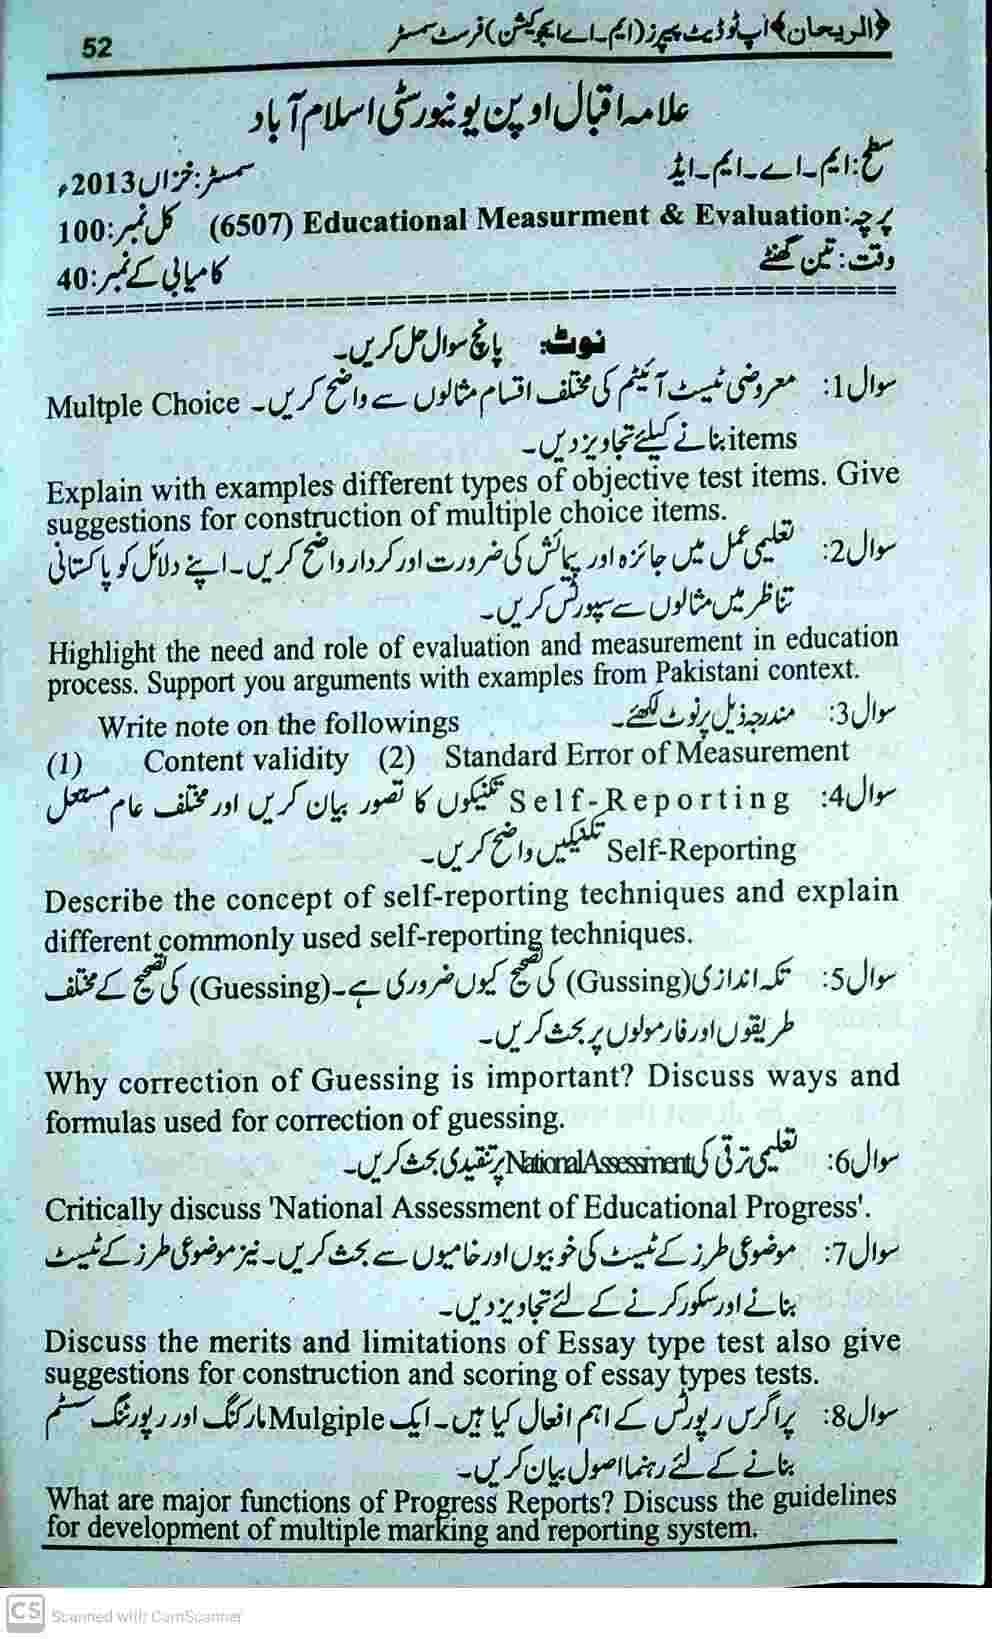 52 ﴿الریحان﴾اپ ٹو ڈیٹ پیپرز (ایم۔اے ایجوکیشن) فرسٹ سمسٹر
علامہ اقبال اوپن یونیورسٹی اسلام آباد
سطح: ایم۔اے۔ایم۔ایڈ سمسٹر: خزاں 2013ء
پرچہ: (6507) Educational Measurment & Evaluation کل نمبر: 100
وقت: تین گھنٹے کامیابی کے نمبر: 40
نوٹ: پانچ سوال حل کریں۔
سوال1: معروضی ٹیسٹ آئیٹم کی مختلف اقسام مثالوں سے واضح کریں۔ Multple Choice
items بنانے کیلئے تجاویز دیں۔
Explain with examples different types of objective test items. Give
suggestions for construction of multiple choice items.
سوال2: تعلیمی عمل میں جائزہ اور پیمائش کی ضرورت اور کردار واضح کریں۔ اپنے دلائل کو پاکستانی
تناظر میں مثالوں سے سپورٹس کریں۔
Highlight the need and role of evaluation and measurement in education
process. Support you arguments with examples from Pakistani context.
سوال3: مندرجہ ذیل پر نوٹ لکھئے۔ Write note on the followings
(1) Content validity (2) Standard Error of Measurement
سوال4: Self-Reporting تکنیکوں کا تصور بیان کریں اور مختلف عام مستعمل
Self-Reporting تکنیکیں واضح کریں۔
Describe the concept of self-reporting techniques and explain
different commonly used self-reporting techniques.
سوال5: تکہ اندازی (Gussing) کی تصحیح کیوں ضروری ہے۔ (Guessing) کی تصحیح کے مختلف
طریقوں اور فارمولوں پر بحث کریں۔
Why correction of Guessing is important? Discuss ways and
formulas used for correction of guessing.
سوال6: تعلیمی ترقی کی National Assessment پر تنقیدی بحث کریں۔
Critically discuss 'National Assessment of Educational Progress'.
سوال7: موضوعی طرز کے ٹیسٹ کی خوبیوں اور خامیوں سے بحث کریں۔ نیز موضوعی طرز کے ٹیسٹ
بنانے اور سکور کرنے کے لئے تجاویز دیں۔
Discuss the merits and limitations of Essay type test also give
suggestions for construction and scoring of essay types tests.
سوال8: پراگرس رپورٹس کے اہم افعال کیا ہیں۔ ایک Mulgiple مارکنگ اور رپورٹنگ سسٹم
بنانے کے لئے رہنما اصول بیان کریں۔
What are major functions of Progress Reports? Discuss the guidelines
for development of multiple marking and reporting system.
CS Scanned with CamScanner